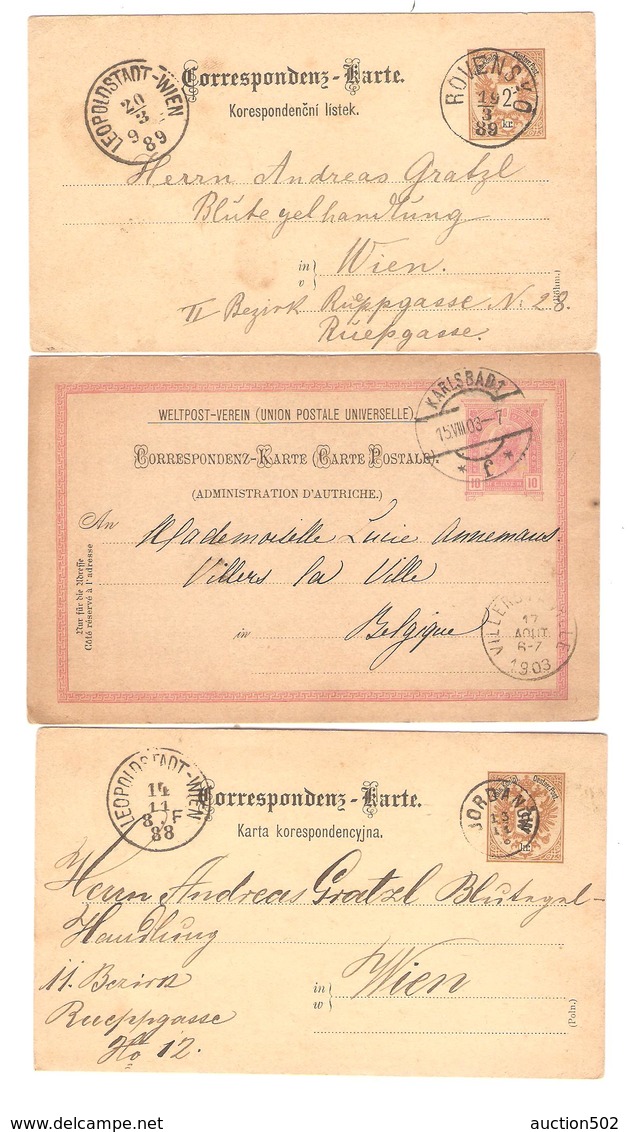 LEOPOLDSTADT-WIEN
20
3
9
89
Correspondenz-Karte.
Korespondenční lístek.
ROVENSKO
19
3
89
2
kr.
Herrn Andreas Gratzl
Blutegelhandlung
in
v
Wien.
II Bezirk Rueppgasse N: 28.
Ruepgasse.
(Böhm.)
WELTPOST-VEREIN (UNION POSTALE UNIVERSELLE)
CORRESPONDENZ-KARTE (CARTE POSTALE).
(ADMINISTRATION D'AUTRICHE.)
KARLSBAD 1
15.VIII.03-7
* f *
10 10
An
Mademoiselle Lucie Annemans.
Villers la Ville
in Belgique
Nur für die Adresse
Côté réservé à l'adresse
VILLERS-LA-VILLE
17
AOUT
6-7
1903
LEOPOLDSTADT-WIEN
14
11
8 F
88
Correspondenz-Karte.
Karta korespondencyjna.
JORDANÓW
Herrn Andreas Gratzl Blutegel-
Handlung
in
w
Wien
11. Bezirk
Rueppgasse
No 12.
(Poln.)
auction502